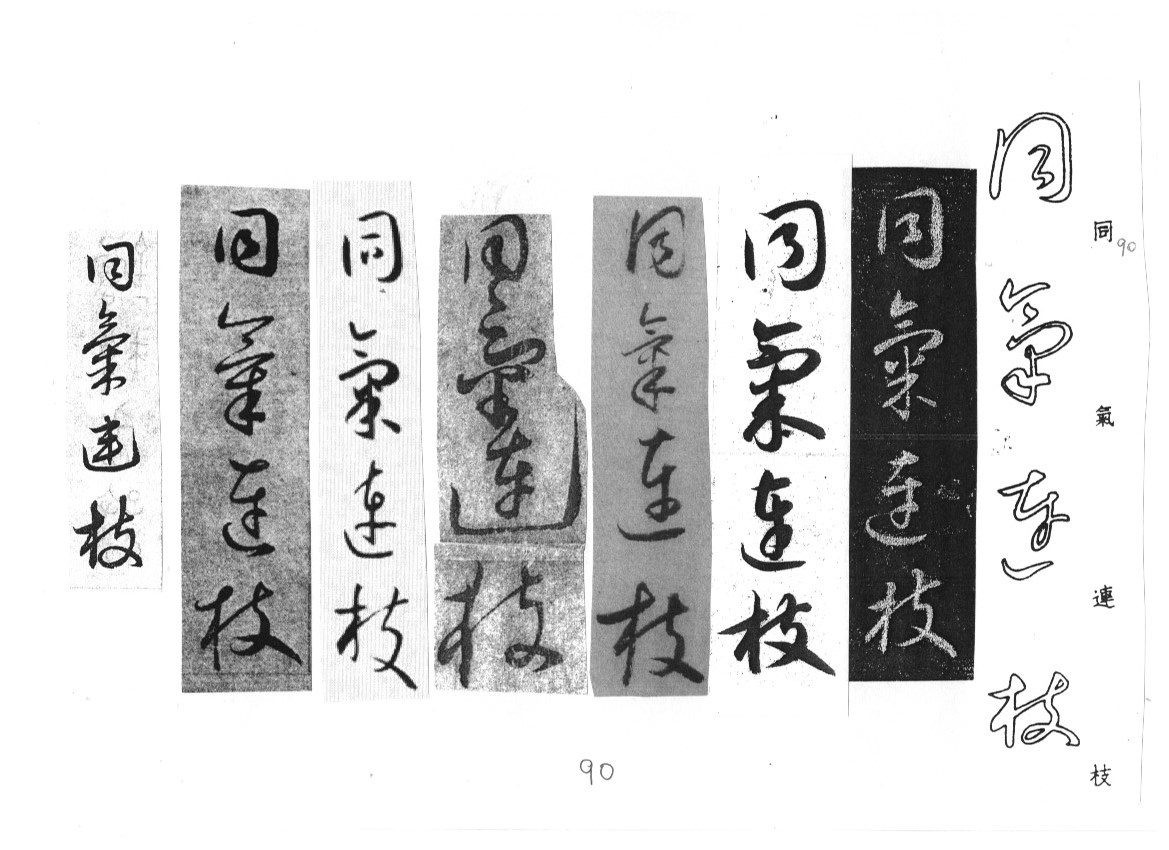 同氣連枝
90
同氣連枝
同氣連枝
同氣連枝
同氣連枝
同氣連枝
同氣連枝
同氣連枝
同氣連枝
90